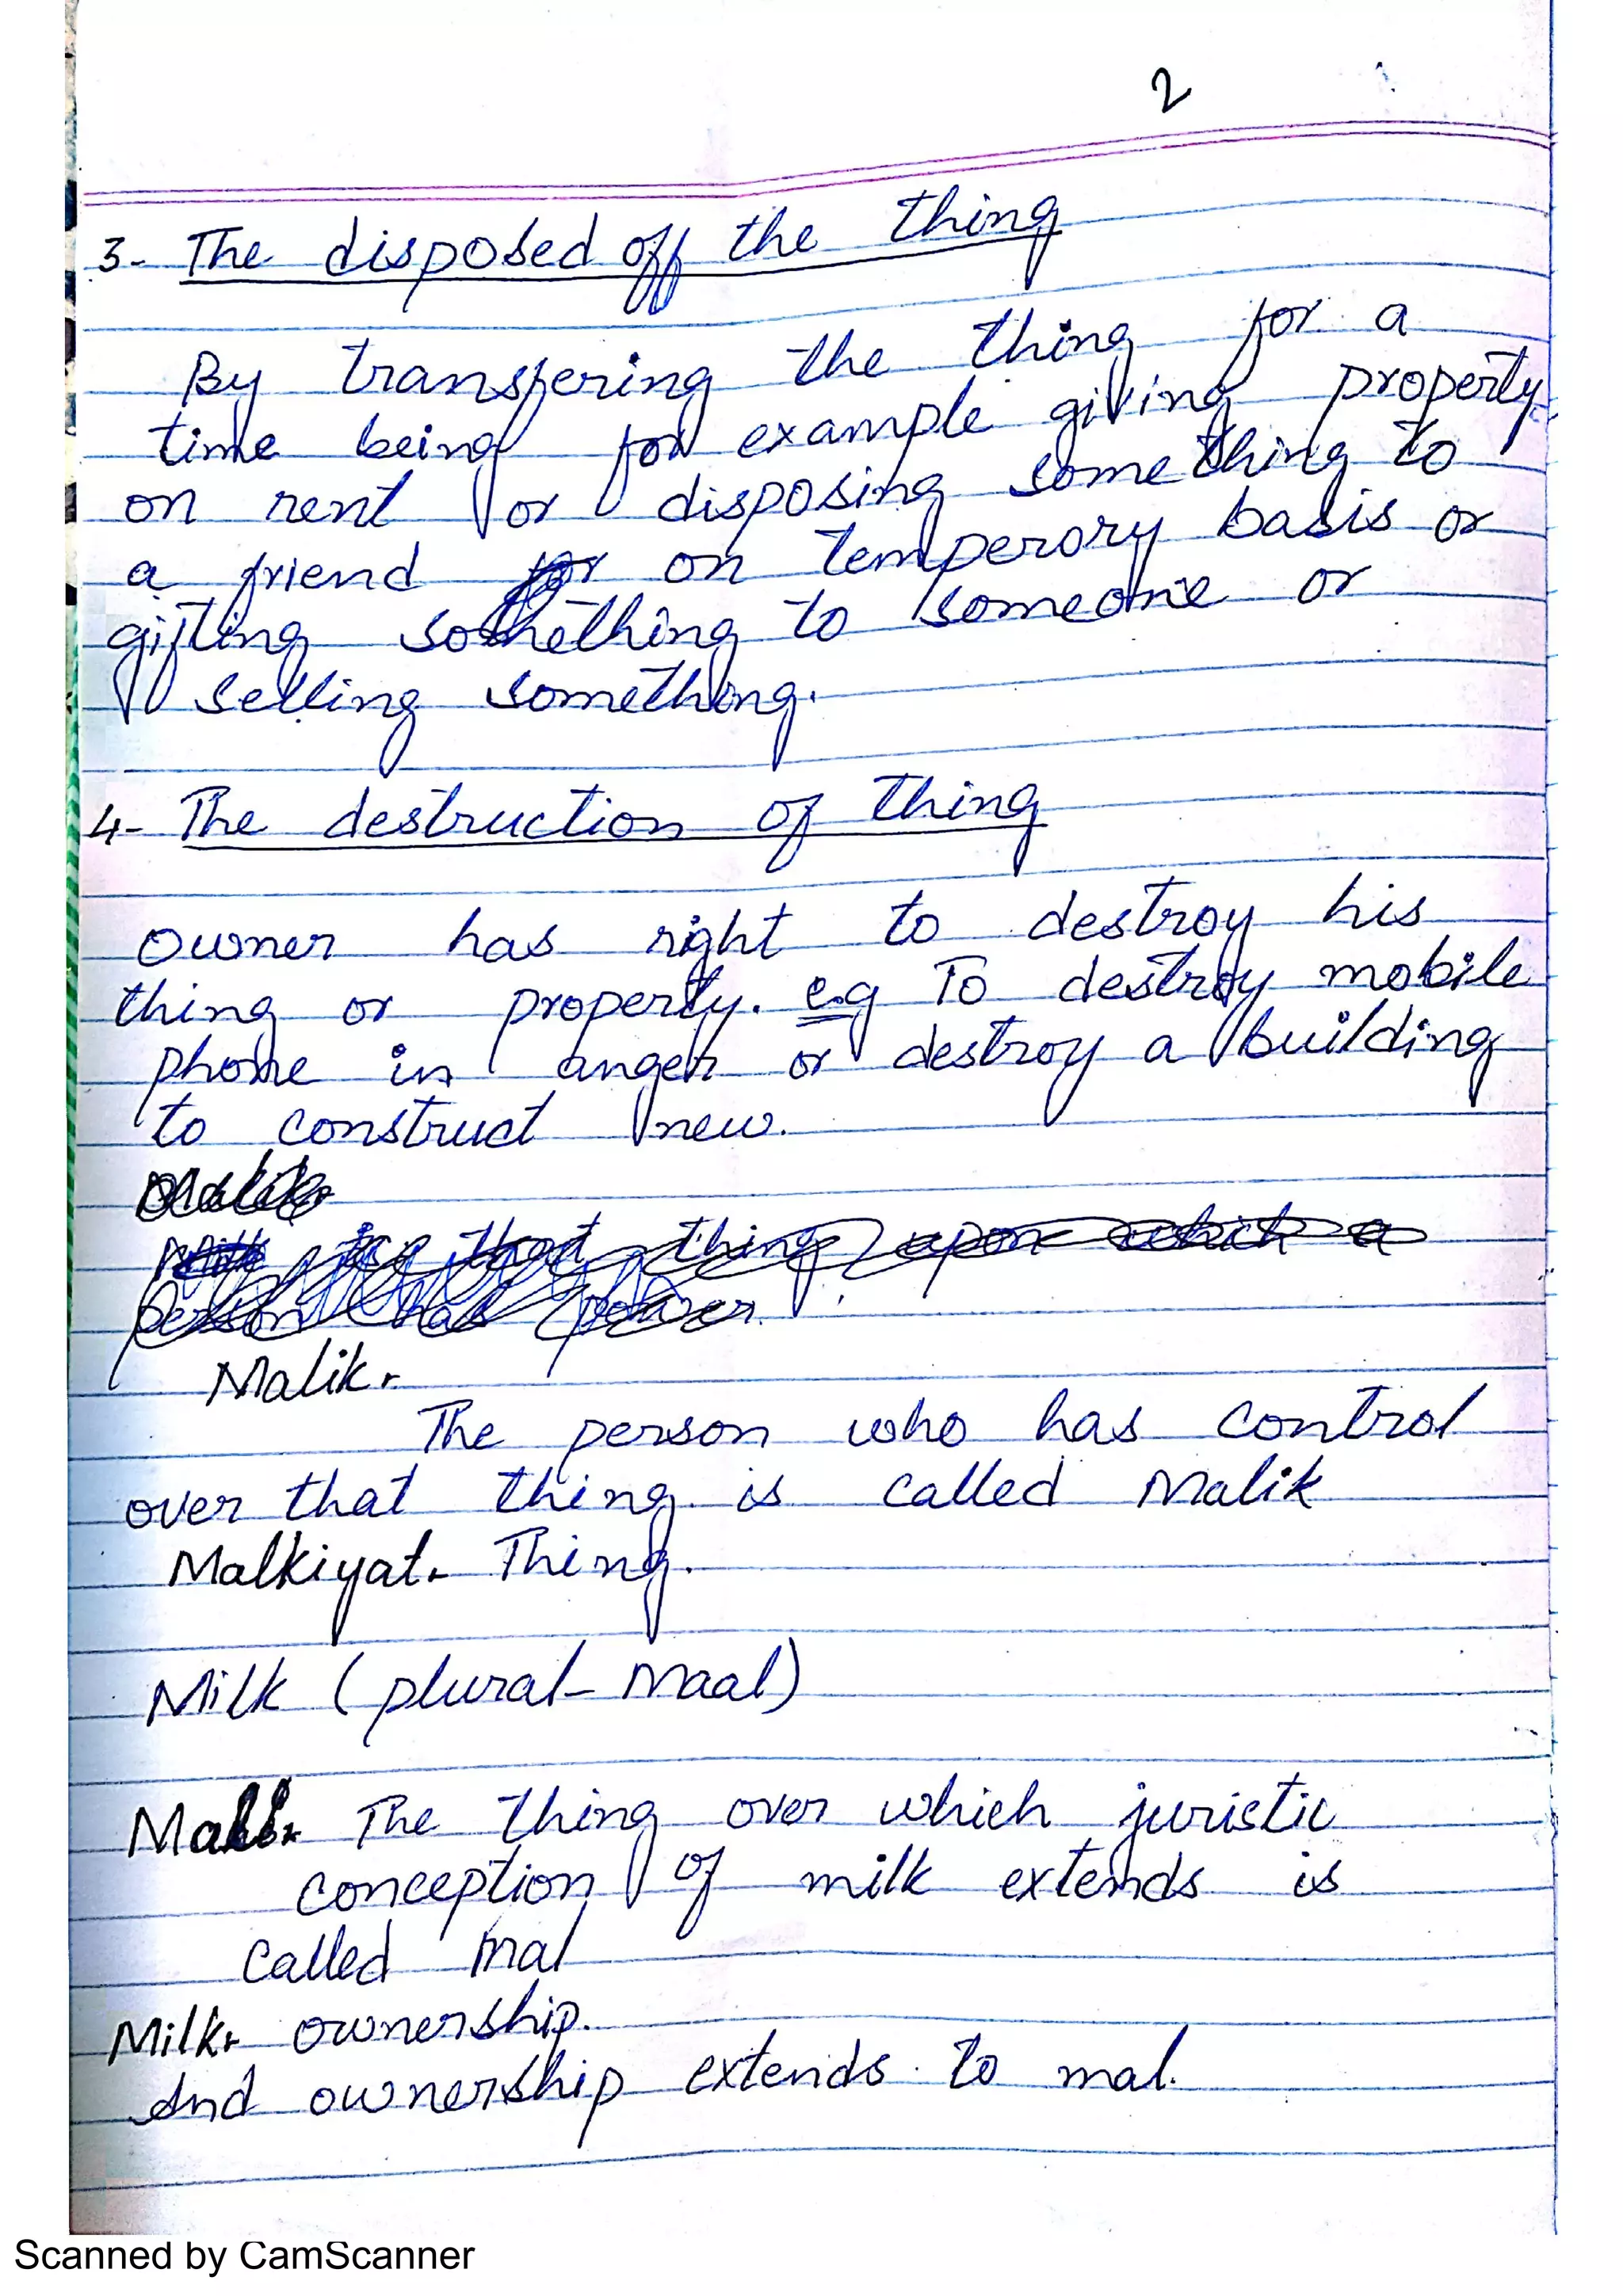 2
3- The disposed off the thing
By transfering the thing for a
time being for example giving property
on rent or disposing something to
a friend on temperory basis or
gifting something to someone or
selling something.
4- The destruction of thing
Owner has right to destroy his
thing or property. e.g To destroy mobile
phone in anger or destroy a building
to construct new.
Malik
Milk is that thing upon which a
person has power.
Malik-
The person who has control
over that thing is called Malik
Malkiyat- Thing.
Milk (plural- Maal)
Mal- The thing over which juristic
conception of milk extends is
called mal
Milk- ownership.
And ownership extends to mal.
Scanned by CamScanner